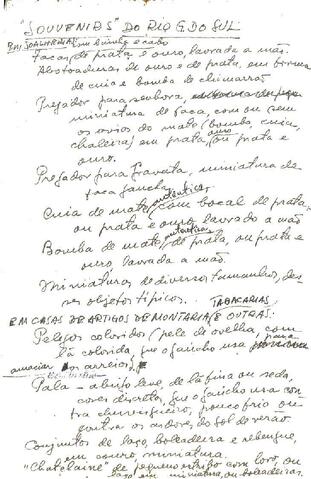 "SOUVENIRS" DO RIO G. DO SUL
EM JOALHERIAS
Facas de prata e ouro, lavrada a mão.
Abotoaduras de ouro e de prata, em forma
de cuia e bomba de chimarrão
Pregador para senhora
miniatura de faca, com ou sem
os avios do mate (bomba, cuia,
chaleira) em prata, ouro, ou prata e
ouro.
Pregador para gravata, miniatura de
faca gaucha
Cuia de mate, autêntica, com bocal de prata
ou prata e ouro lavrado a mão
Bomba de mate, autentica, de prata, ou prata e
ouro lavrada a mão.
Miniaturas de diversos tamanhos, des-
ses objetos típicos. TABACARIAS.
EM CASAS DE ARTIGOS DE MONTARIA E OUTRAS:
Pelegos coloridos (pele de ovelha, com
lã colorida, que o gaúcho usa para
amaciar os arreios)
Pala - abrigo leve, de lã fina ou seda,
cores discretas, que o gaúcho usa con-
tra chuvisqueiro, pouco frio ou
contra os ardores do sol de verão.
Conjuntos de laço, boleadeira e rebenque,
em couro, miniatura.
"Chatelaine" de pequeno estribo com loro, ou
laço em miniatura, ou boleadeiras.